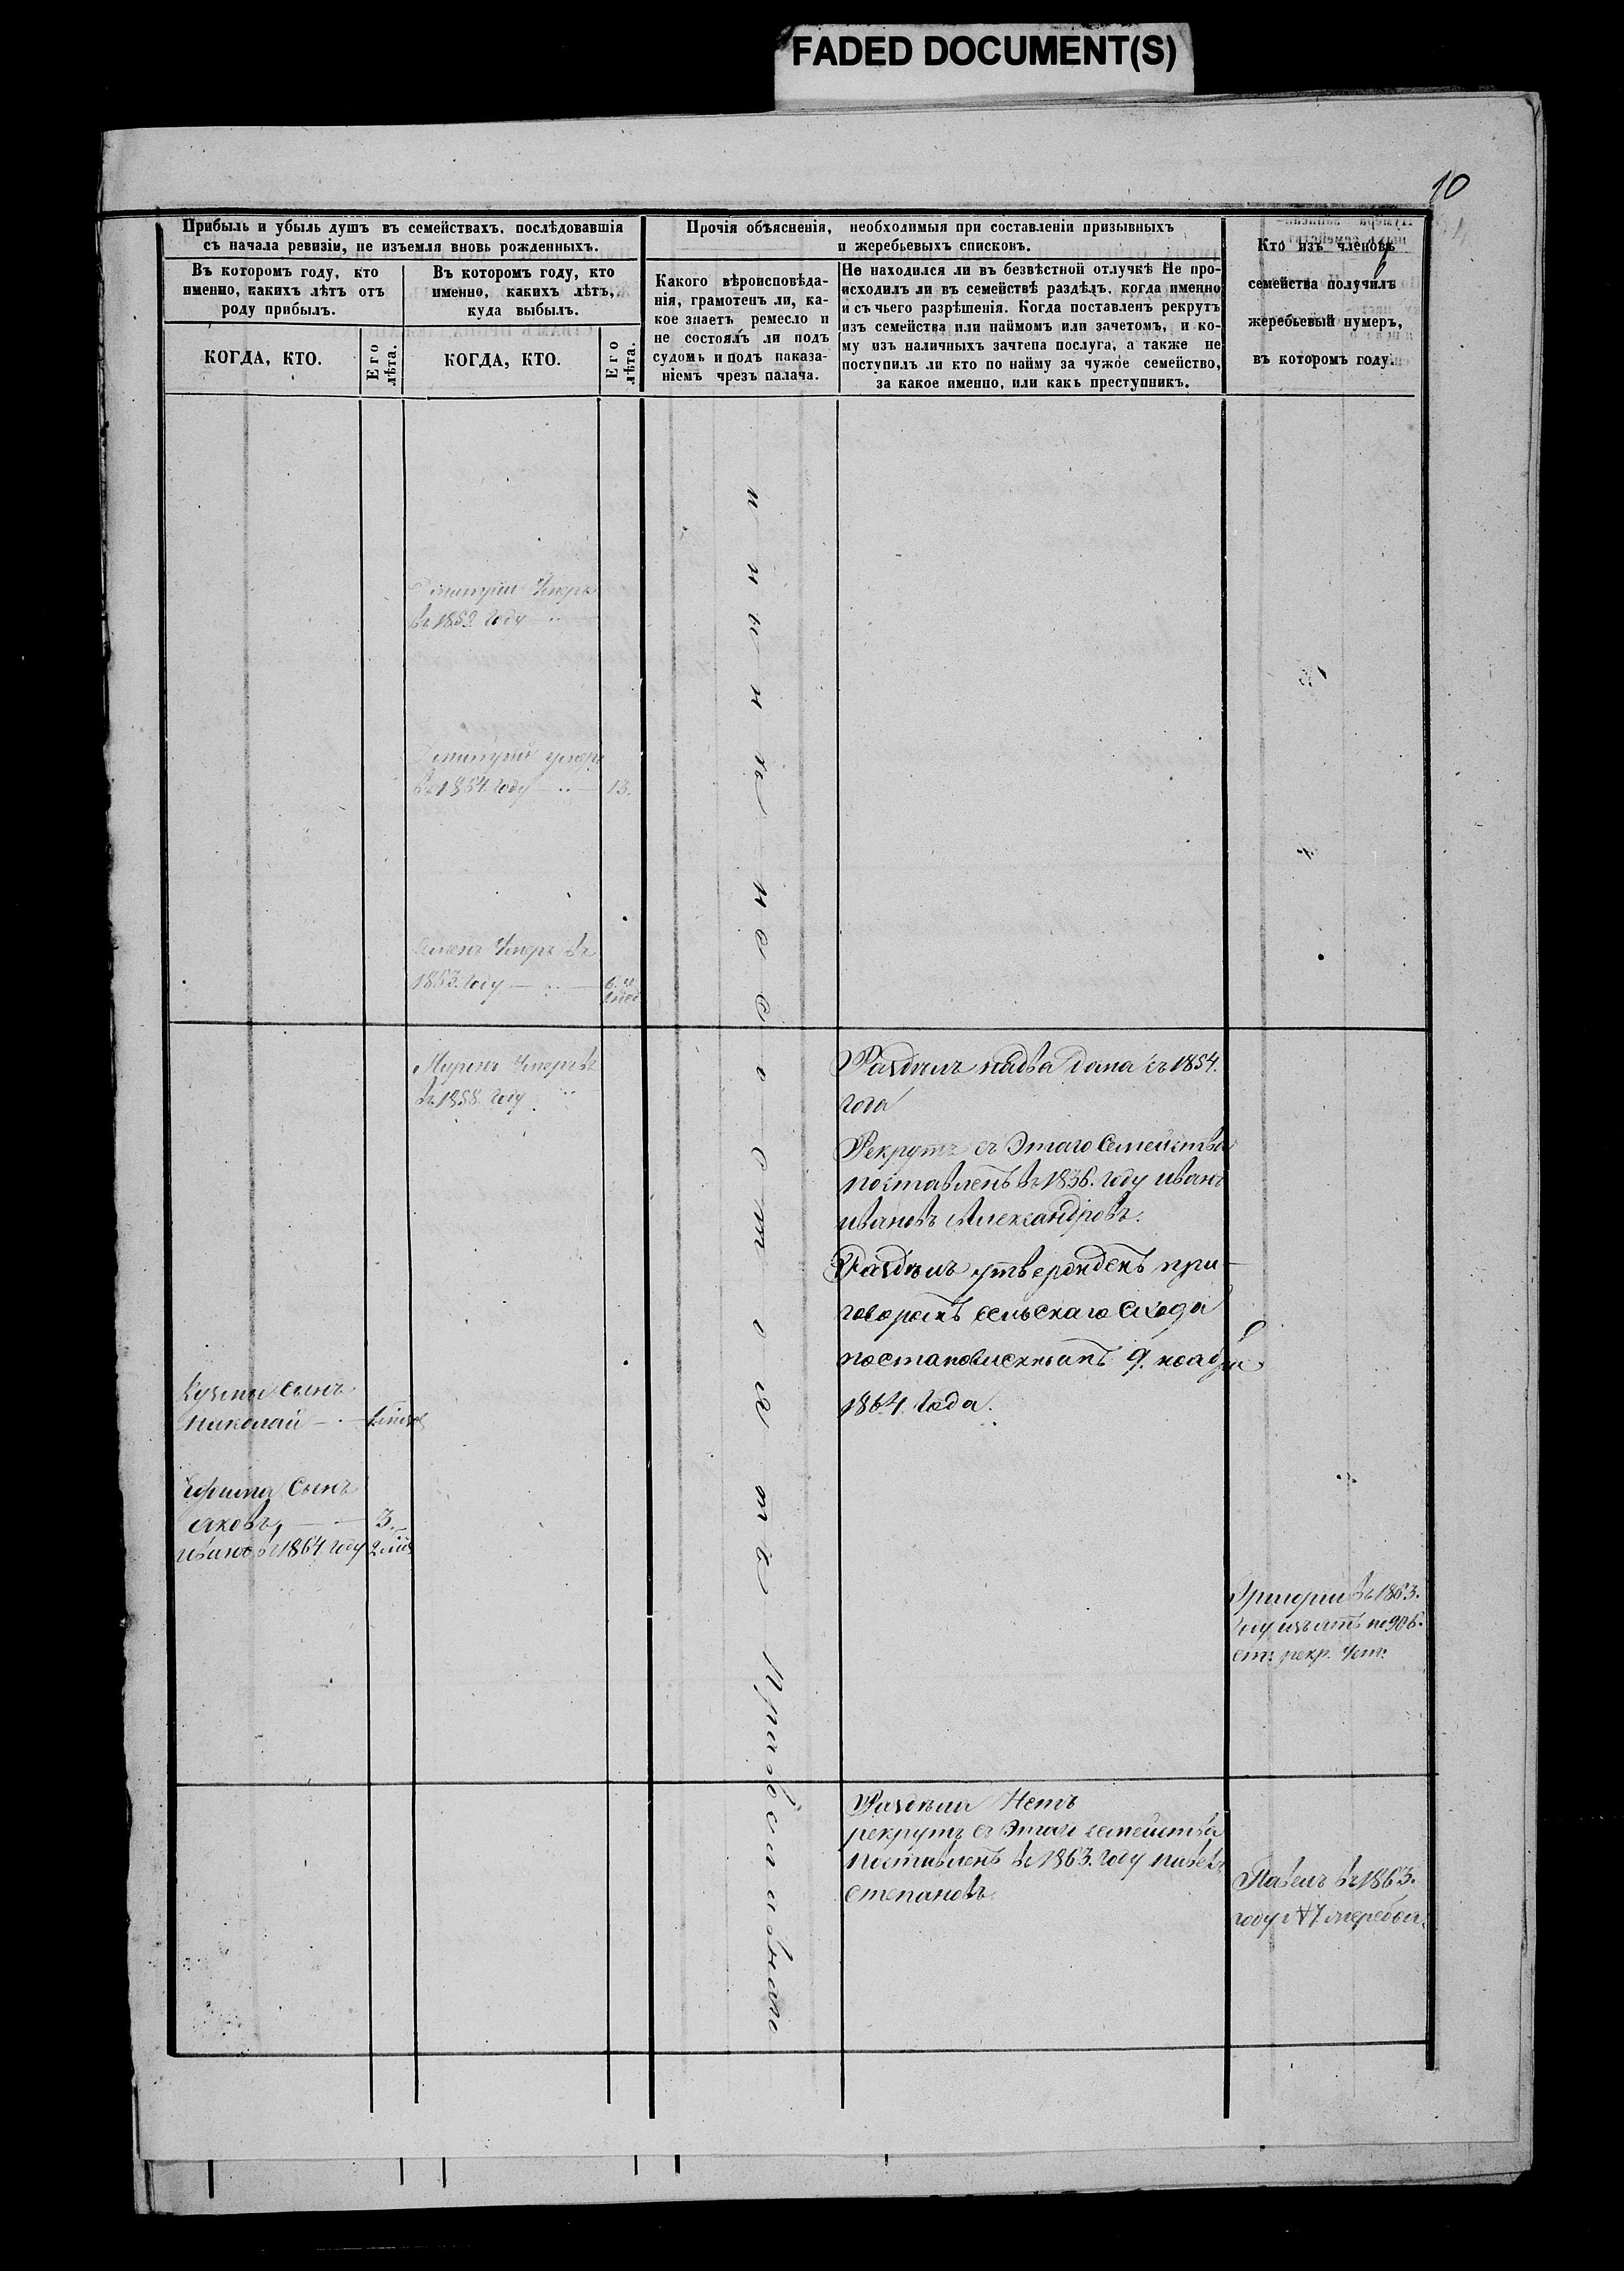 FADED DOCUMENT(S)
10
Прибыль и убыль душъ въ семействахъ, послѣдовавшія
съ начала ревизіи, не изъемля вновь рожденныхъ.
Въ которомъ году, кто
именно, какихъ лѣтъ отъ
роду прибылъ.
КОГДА, КТО.
Его
лѣта.
Въ которомъ году, кто
именно, какихъ лѣтъ,
куда выбылъ.
КОГДА, КТО.
Его
лѣта.
Прочія объясненія, необходимыя при составленіи призывныхъ
и жеребьевыхъ списковъ.
Какого вѣроисповѣда-
нія, грамотенъ ли, ка-
кое знаетъ ремесло и
не состоялъ ли подъ
судомъ и подъ наказа-
ніемъ чрезъ палача.
Не находился ли въ безвѣстной отлучкѣ Не про-
исходилъ ли въ семействѣ раздѣлъ, когда именно
и съ чьего разрѣшенія. Когда поставленъ рекрутъ
изъ семейства или наймомъ или зачетомъ, и ко-
му изъ наличныхъ зачтена послуга, а также не
поступилъ ли кто по найму за чужое семейство,
за какое именно, или какъ преступникъ.
Кто изъ членовъ
семейства получилъ
жеребьевый нумеръ,
въ которомъ году.
Дмитрій Умеръ
въ 1859. году
Дмитрій умеръ
въ 1854. году — 13.
Семенъ Умеръ въ
1853. году — 6. и
въ 1858. году
Раздѣлъ на два дома съ 1854.
года
Рекрутъ съ Этаго Семейства
поставленъ въ 1836. году иванъ
ивановъ Александровъ.
Раздѣлъ утвержденъ при-
говоромъ сельскаго Схода
постановленнымъ 9. ноября
1864 года.
Кузьмы сынъ
Николай
Ефима Сынъ
Яковъ, — 3.
иванъ въ 1864 году
Григорій въ 1863.
году изъятъ по 906.
ст: рекр. уст:
Раздѣла Нетъ
рекрутъ съ Этаго семейства
поставленъ въ 1863. году павелъ
степановъ
Павелъ въ 1863.
году 47. жеребья.
не состоятъ
Православнаго